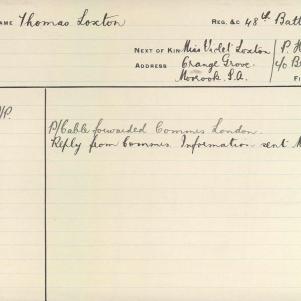 NAME Thomas Loxton REG. &C 48th Batt
NEXT OF KIN Miss Violet Loxton / P. H
ADDRESS Orange Grove. / c/o B
Moorook. S.A. FI
/P.
P/Cable forwarded Commrs London.
Reply from Commrs. Information sent